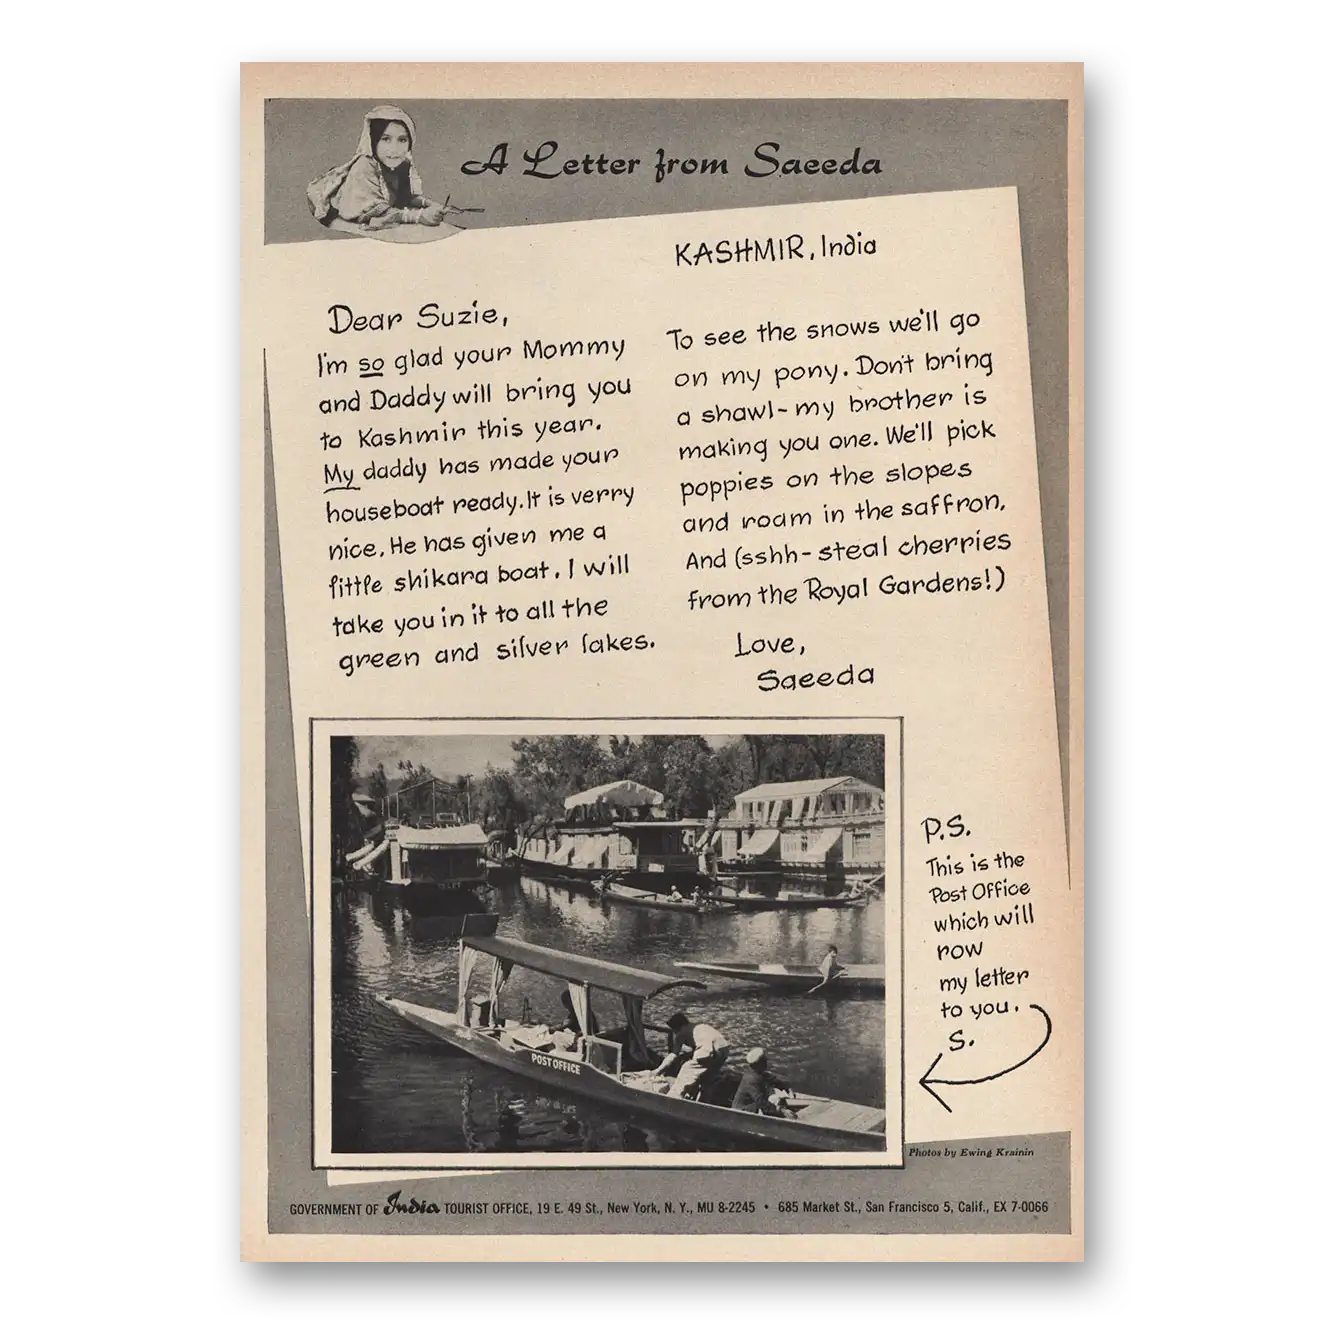 A Letter from Saeeda
KASHMIR, India
Dear Suzie,
I'm so glad your Mommy
and Daddy will bring you
to Kashmir this year.
My daddy has made your
houseboat ready. It is verry
nice. He has given me a
little shikara boat. I will
take you in it to all the
green and silver lakes.
To see the snows we'll go
on my pony. Don't bring
a shawl - my brother is
making you one. We'll pick
poppies on the slopes
and roam in the saffron.
And (sshh - steal cherries
from the Royal Gardens!)
Love,
Saeeda
P.S.
This is the
Post Office
which will
row
my letter
to you.
S.
POST OFFICE
Photos by Ewing Krainin
GOVERNMENT OF India TOURIST OFFICE, 19 E. 49 St., New York, N. Y., MU 8-2245 • 685 Market St., San Francisco 5, Calif., EX 7-0066